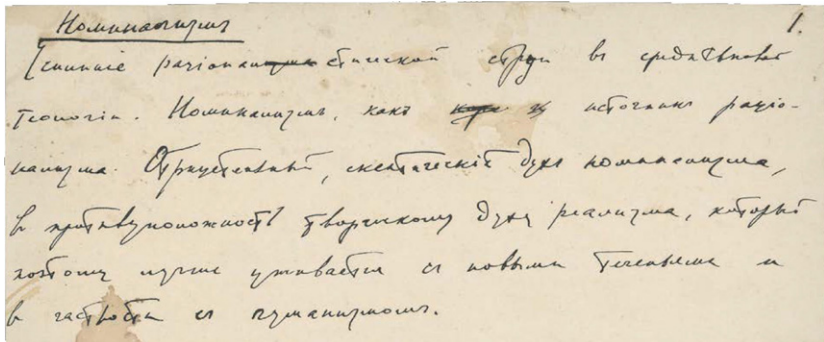 Номинализмъ
1.
Теченіе раціоналистической струи въ средневѣковой
теологіи. Номинализмъ, какъ источникъ раціо-
нализма. Отрицательный, скептическій духъ номинализма,
в противуположность творческому духу реализма, который
поэтому лучше уживается съ новыми теченьями и
в частности съ гуманизмомъ.